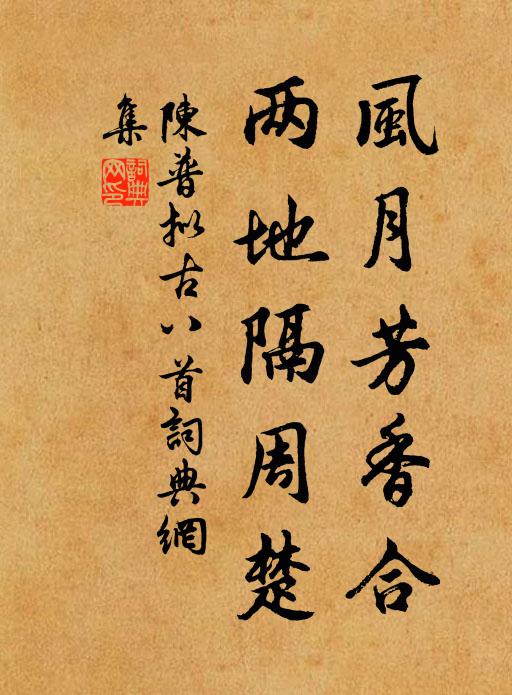 風月芳香合
两地隔周楚
陳普拟古八首詞典網
集
詞典
网印